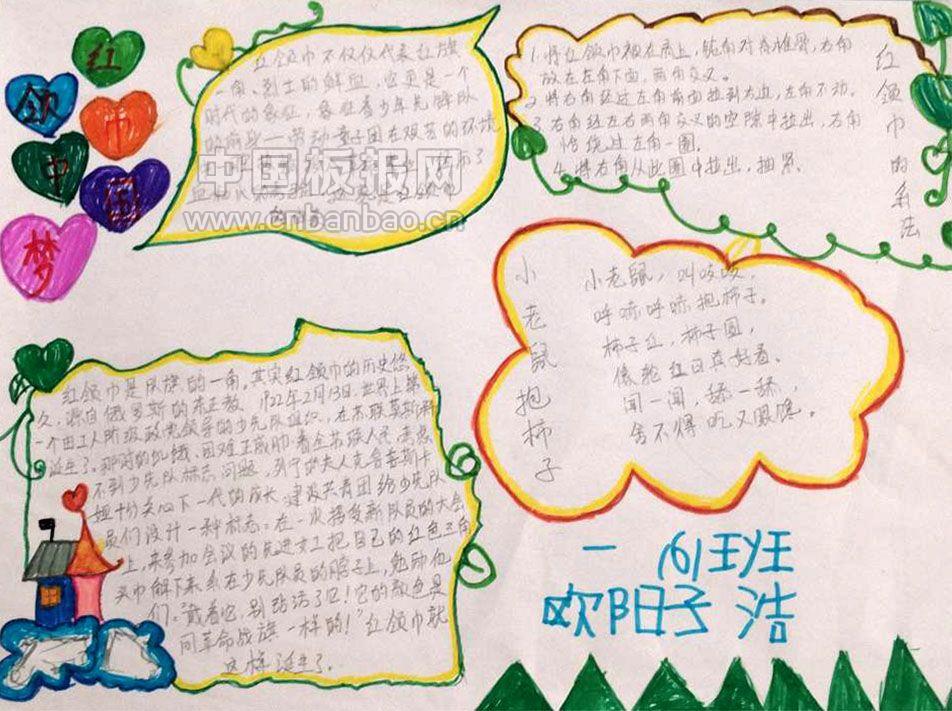 红
领
巾
中
国
梦
红领巾不仅仅代表红旗
一角,烈士的鲜血,它更是一个
时代的象征,象征着少年先锋队
的前身——劳动童子团在艰苦的环境
中国板报网
www.cnbanbao.cn
红领巾的
法
1.将红领巾披在肩上,钝角对脊椎骨,右角
放在左角下面,两角交叉。
2.将右角经过左角前面拉到右边,左角不动。
3.右角经左右两角交叉的空隙中拉出,右角
恰绕过左角一圈。
4.将右角从此圈中拉出,抽紧。
小老鼠抱柿子
小老鼠,叫吱吱,
呼哧呼哧抱柿子。
柿子红,柿子圆,
像轮红日真好看。
闻一闻,舔一舔,
舍不得吃又眼馋。
红领巾是队旗的一角,其实红领巾的历史悠
久,源自俄罗斯的东正教。1922年2月13日,世界上第
一个由工人阶级政党领导的少先队组织,在苏联莫斯科
诞生了。那时的饥饿、困难正威胁着全苏联人民,
不到少先队标志问题,列宁的夫人克鲁普斯卡
娅十分关心下一代的成长,建议共青团给少先队
员们设计一种标志。在一次接受新队员的大会
上,来参加会议的先进女工把自己的红色三角
头巾解下来系在少先队员的脖子上,勉励他
们:“戴着它,别玷污了它!它的颜色是
同革命战旗一样的!”红领巾就
这样诞生了。
一(6)班
欧阳子浩